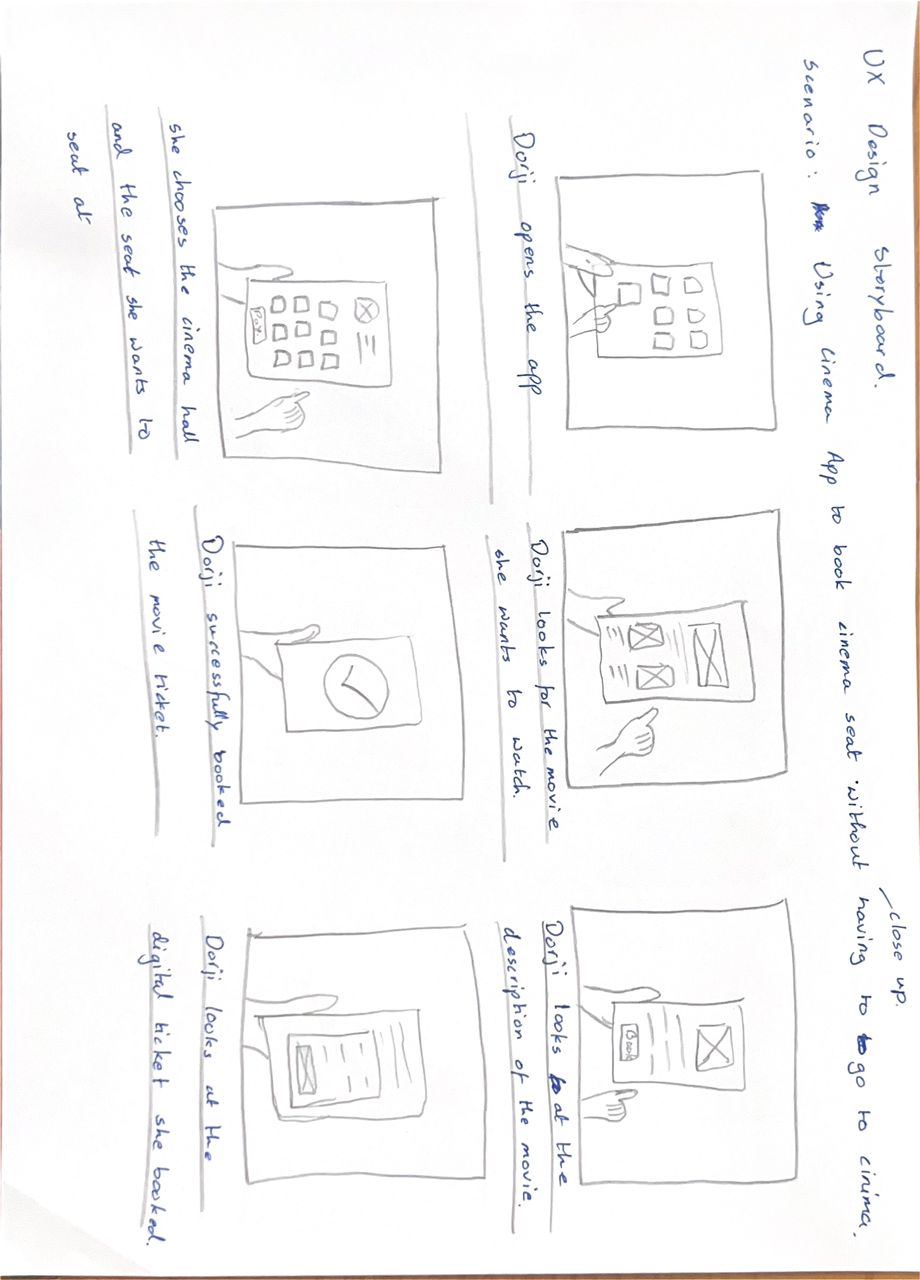 UX Design Storyboard.
close up.
Scenario: Using Cinema App to book cinema seat without having to go to cinima.
Dorji opens the app
Dorji looks for the movie
she wants to watch.
Book
Dorji looks at the
description of the movie.
Pay
she chooses the cinema hall
and the seat she wants to
seat at
Dorji successfully booked
the movie ticket.
Dorji looks at the
digital ticket she booked.